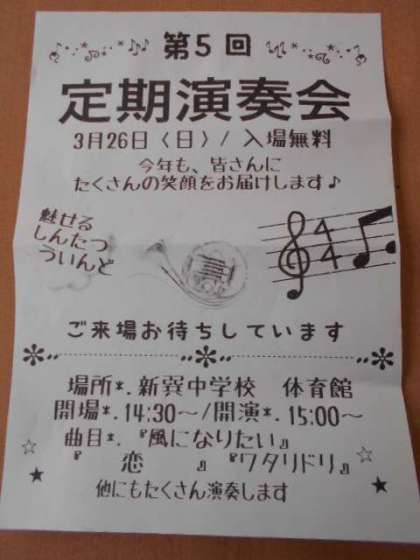 第5回
定期演奏会
3月26日〈日〉/入場無料
今年も、皆さんに
たくさんの笑顔をお届けします♪
魅せる
しんたつ
ういんど
4
4
ご来場お待ちしています
場所*.新巽中学校 体育館
開場*.14:30～/開演*.15:00～
曲目*.『風になりたい』
『 恋 』『ワタリドリ』
他にもたくさん演奏します